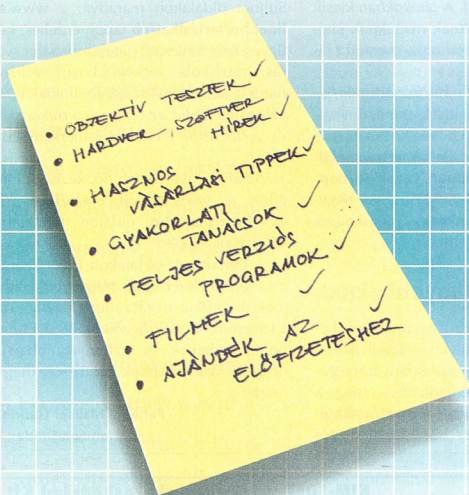 • OBJEKTÍV TESZTEK ✓
• HARDVER, SZOFTVER
HÍREK ✓
• HASZNOS
VÁSÁRLÁSI TIPPEK ✓
• GYAKORLATI
TANÁCSOK ✓
• TELJES VERZIÓS
PROGRAMOK ✓
• FILMEK ✓
• AJÁNDÉK AZ ✓
ELŐFIZETÉSHEZ